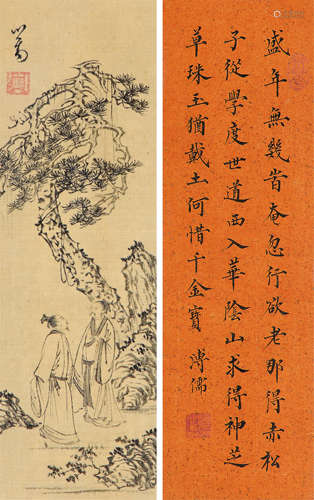 心畬
盛年無幾時奄忽行欲老那得赤松
子從學度世道西入華陰山求得神芝
草珠玉猶戴土何惜千金寶 溥儒